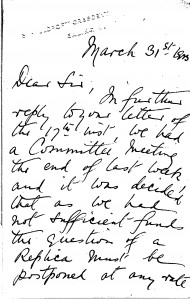 CRESCENT
March 31st
Dear Sir, In further
reply to your letter of
the 17th inst, we had
a Committee Meeting
the end of last week
and it was decided
that as we had
not sufficient funds
the question of a
Replica must be
postponed at any rate